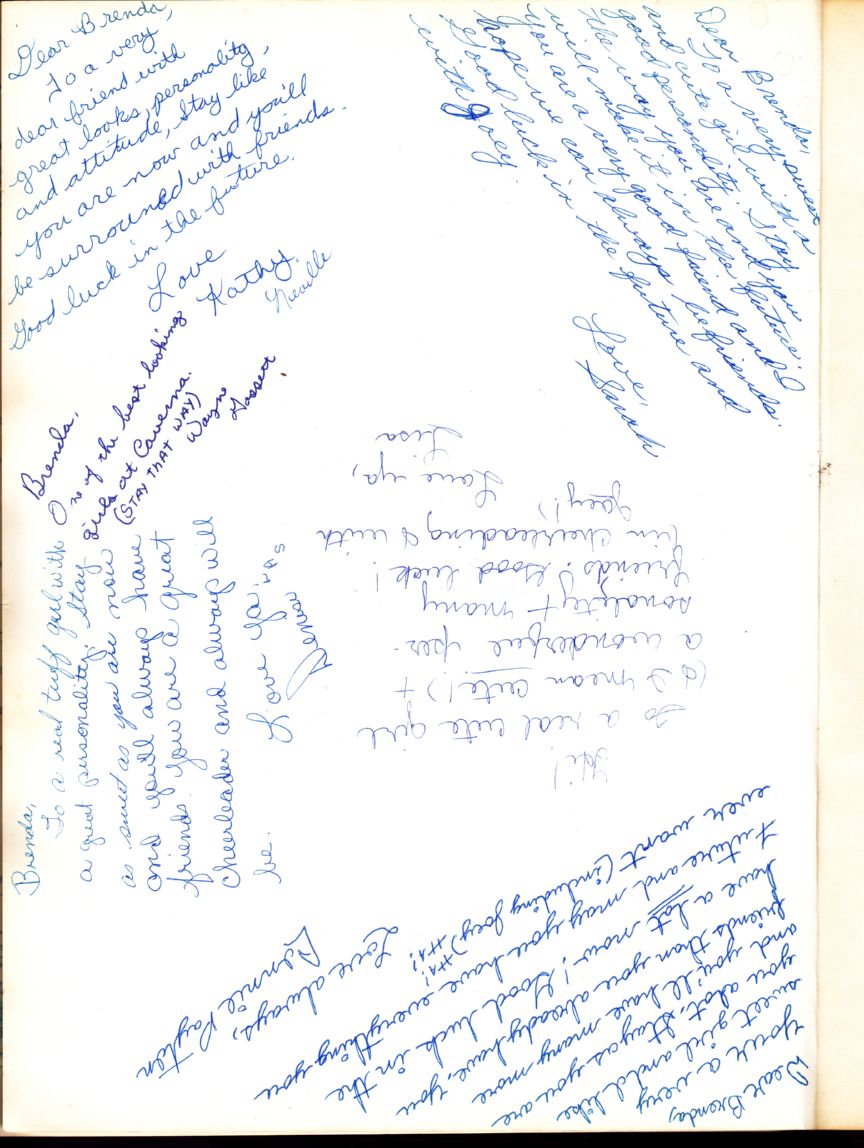 Dear Brenda,
To a very
dear friend with
great looks, personality,
and attitude, stay like
you are now and you'll
be surrounded with friends.
Good luck in the future.
Love
Kathy
Neville
Dear Brenda,
To a very sweet
and cute girl with a
good personality. Stay
the way you are and you
will make it in the future.
You are a very good friend and I
hope we can always be friends.
Good luck in the future and
with Joey.
Love,
Sarah
Brenda,
One of the best looking
girls at Caverna.
(STAY THAT WAY)
Wayne
Gassett
Brenda,
To a real tuff girl with
a great personality. Stay
as sweet as you are now
and you'll always have
friends. You are a great
cheerleader and always will
be.
Love Ya',
Hi!
To a real cute girl
(& I mean cute!) +
a wonderful per-
sonality + many
friends! Good luck!
(in cheerleading & with
Joey!)
Love ya,
Lisa
Dear Brenda,
You're a very
sweet girl and I like
you alot. Stay as you are
and you'll have many more
friends than you already have, you
have a lot now! Good luck in the
future and may you have everything you
ever want (including Joey) HA!
HA!
Love always,
Bennie Payton